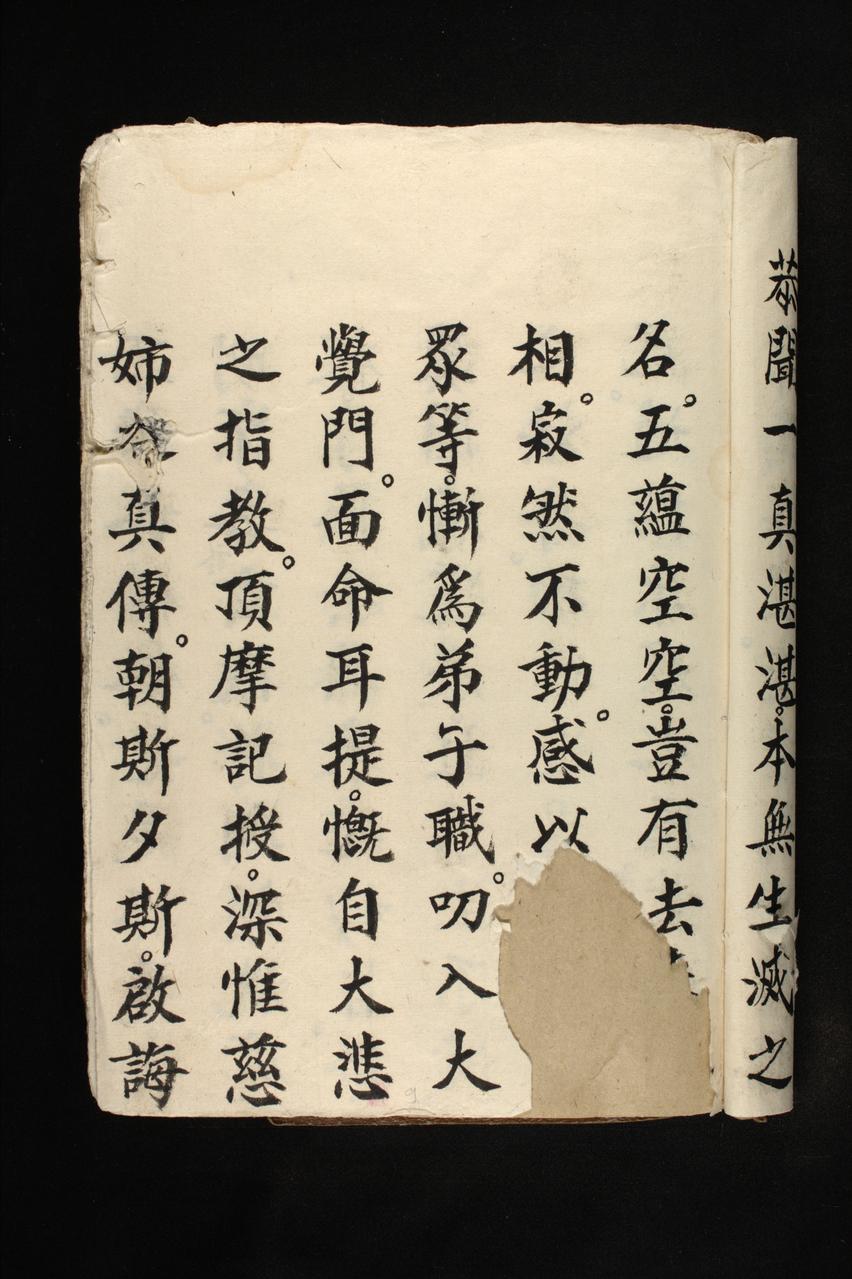 恭聞一真湛湛。本無生滅之
名。五蘊空空。豈有去
相。寂然不動。感以
眾等。慚為弟子職。叨入大
覺門。面命耳提。慨自大悲
之指教。頂摩記授。深惟慈
姉 真傳。朝斯夕斯。啟誨